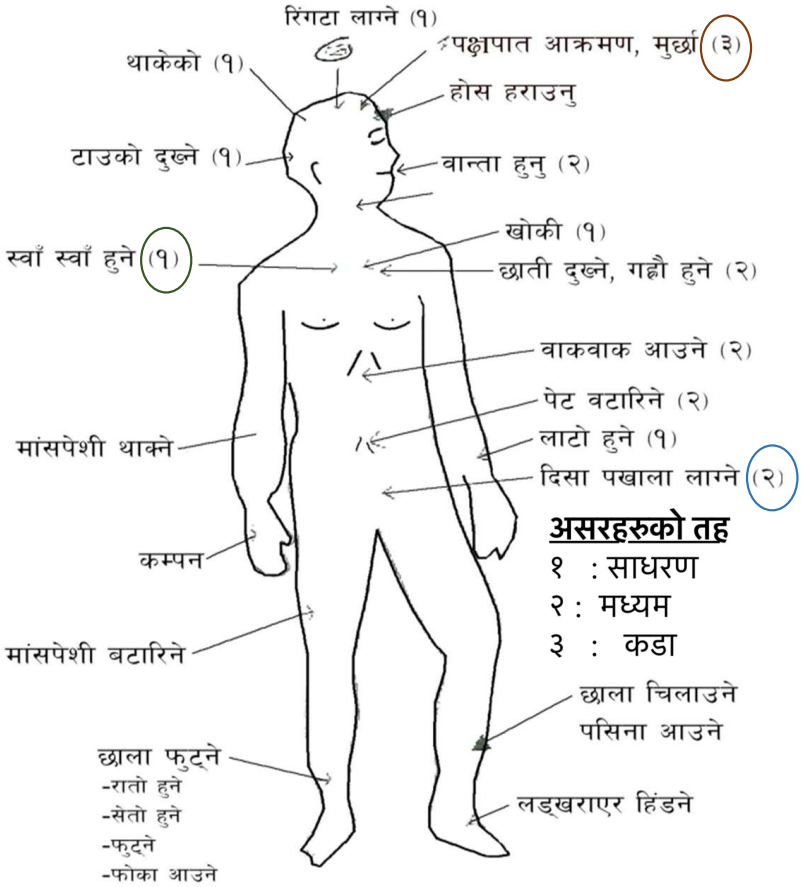 रिंगटा लाग्ने (१)
पक्षपात आक्रमण, मुर्छा (३)
थाकेको (१)
होस हराउनु
टाउको दुख्ने (१)
वान्ता हुनु (२)
खोकी (१)
स्वाँ स्वाँ हुने (१)
छाती दुख्ने, गह्रौ हुने (२)
वाकवाक आउने (२)
पेट वटारिने (२)
लाटो हुने (१)
मांसपेशी थाक्ने
दिसा पखाला लाग्ने (२)
असरहरुको तह
१ : साधरण
२ : मध्यम
३ : कडा
कम्पन
मांसपेशी बटारिने
छाला चिलाउने
पसिना आउने
छाला फुट्ने
-रातो हुने
-सेतो हुने
-फुट्ने
-फोका आउने
लड्खराएर हिंडने